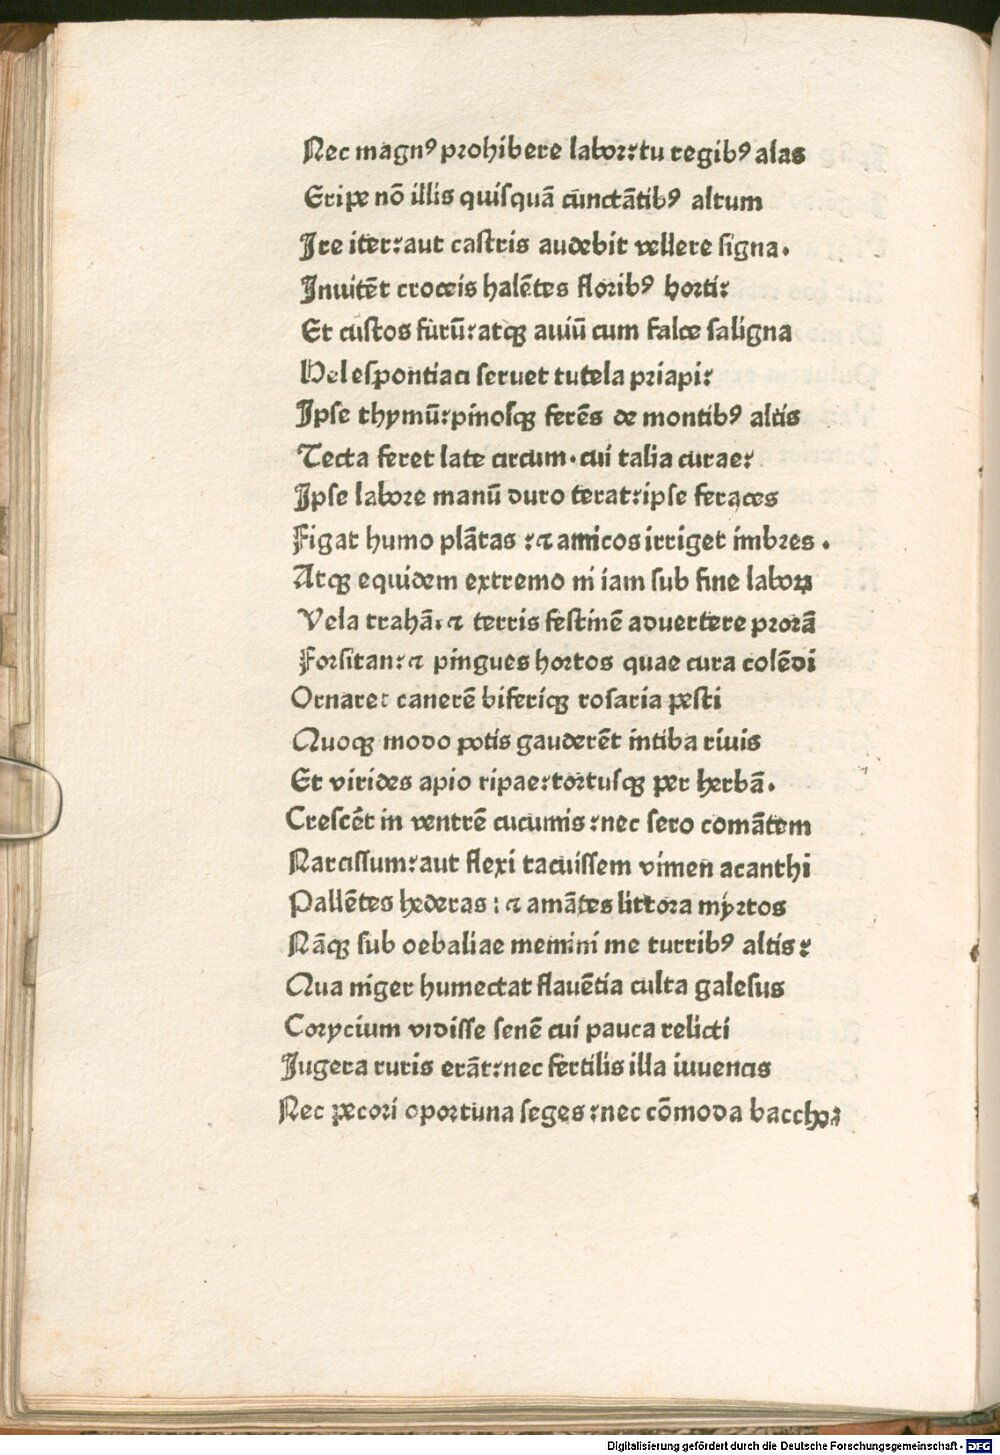 Nec magnꝰ prohibere labor: tu regibꝰ alas
Eripe nō illis quisquā cūnctātibꝰ altum
Ire iter: aut castris audebit vellere signa.
Inuitēt croceis halētes floribꝰ horti:
Et custos furū: atqꝫ auiū cum falce saligna
Helespontiaci seruet tutela priapi:
Ipse thymū: pinosqꝫ ferēs de montibꝰ altis
Tecta feret late circum. cui talia curae:
Ipse labore manū duro terat: ipse feraces
Figat humo plātas : ⁊ amicos irriget imbres .
Atqꝫ equidem extremo ni iam sub fine laboꝝ
Vela trahā. ⁊ terris festinē aduertere prorā
Forsitan: ⁊ pingues hortos quae cura colēdi
Ornaret canerē biferiqꝫ rosaria pesti
Quoqꝫ modo potis gauderēt intiba riuis
Et virides apio ripae: tortusqꝫ per herbā.
Crescēt in ventrē cucumis: nec sero comātem
Narcissum: aut flexi tacuissem vimen acanthi
Pallētes hederas : ⁊ amātes littora myrtos
Nāqꝫ sub oebaliae memini me turribꝰ altis:
Qua niger humectat flauētia culta galesus
Corycium vidisse senē cui pauca relicti
Iugera ruris erāt: nec fertilis illa iuuencis
Nec pecori oportuna seges: nec cōmoda baccho:
Digitalisierung gefördert durch die Deutsche Forschungsgemeinschaft - DFG